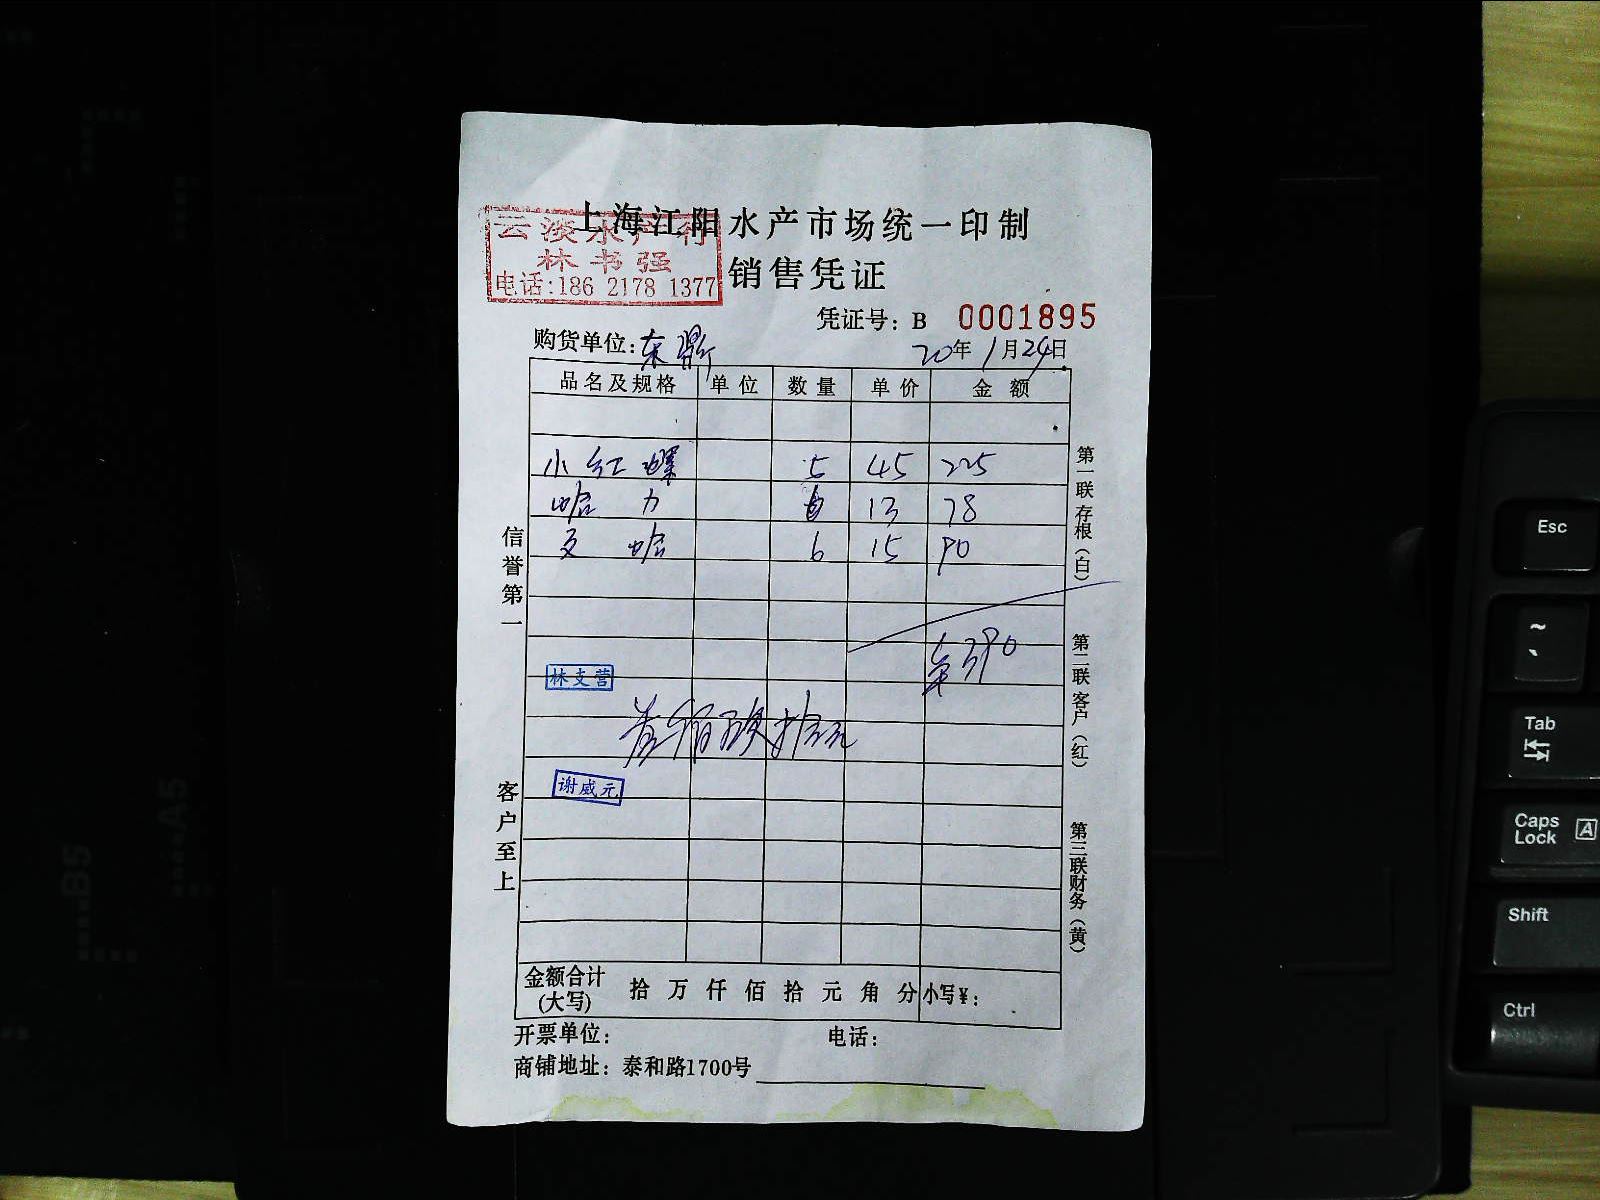 上海江阳水产市场统一印制
云淡水产行
林书强
电话:186 2178 1377
销售凭证
凭证号: B 0001895
购货单位:东鼎
20年1月24日
品名及规格 单位 数量 单价 金额
小红螺 5 45 225
哈力 6 13 78
文哈 6 15 90
390
林支营
拾元
谢威元
信誉第一
客户至上
第一联存根(白)
第二联客户(红)
第三联财务(黄)
金额合计(大写) 拾万仟佰拾元角分 小写¥:
开票单位: 电话:
商铺地址: 泰和路1700号
Esc
~
`
Tab
Caps Lock A
Shift
Ctrl
B5
A5